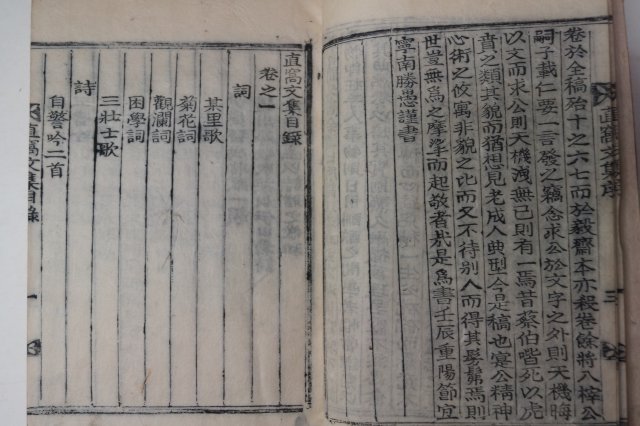 直窩文集序 三
卷於全稿殆十之六七而於毅齋本亦稱卷餘將入榟公
嗣子載仁要一言發之竊念求公於文字之外則天機晦
以文而求公則天機洩無已則有一焉昔蔡伯喈死以虎
賁之類其貌而猶想見老成人典型今是稿也寔公精神
心術之攸寓非貌之比而又不待別人而得其髣髴焉則
世豈無爲之摩挲而起敬者哉是爲書壬辰重陽節宜
寧南勝愚謹書
直窩文集目錄
卷之一
詞
某里歌
菊花詞
觀瀾詞
困學詞
三壯士歌
詩
自警吟二首
直窩文集目錄 一